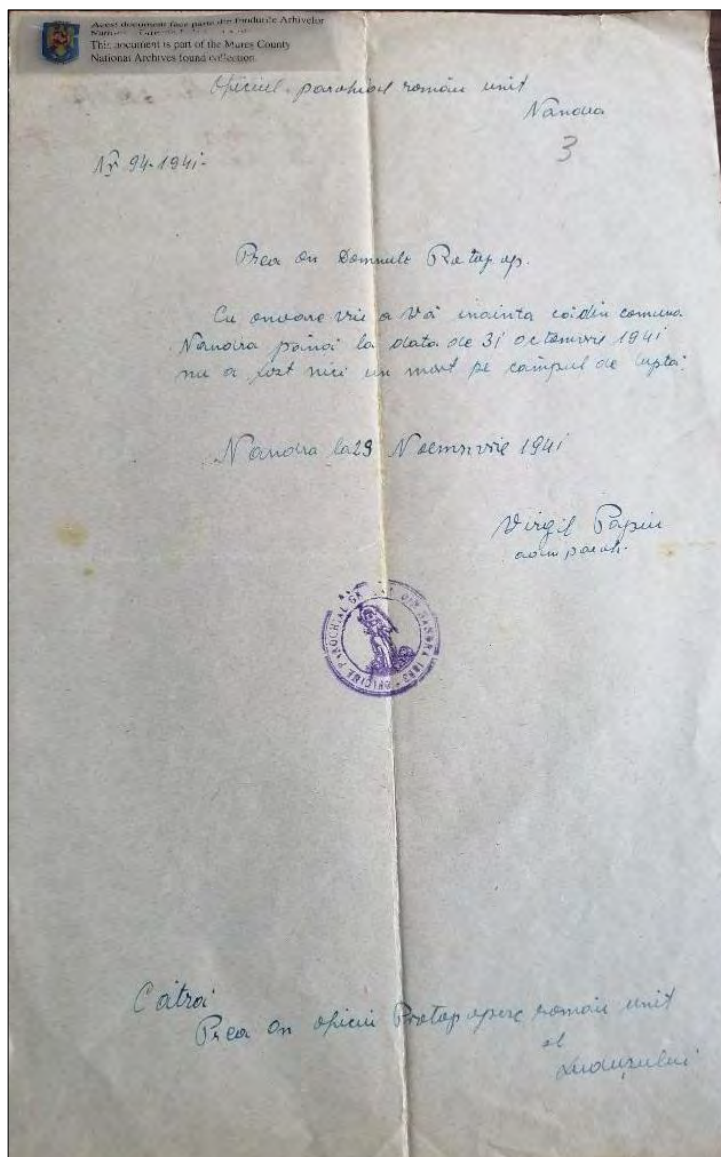 Acest document face parte din fondurile Arhivelor
This document is part of the Mureș County
National Archives found collection
Oficiul parohial român unit
Nandra
3
Nr 94-1941-
Prea On Domnule Protopop.
Cu onoare vin a Vă inainta că din comuna
Nandra până la data de 31 octomvrie 1941
nu a fost nici un mort pe câmpul de luptă.
Nandra la 29 Noemvrie 1941
Virgil Papiu
adm paroh.
OFICIUL PAROCHIAL GR. DIN NANDRA
Cătră
Prea On oficiu Protopopesc român unit
al
Luduşului